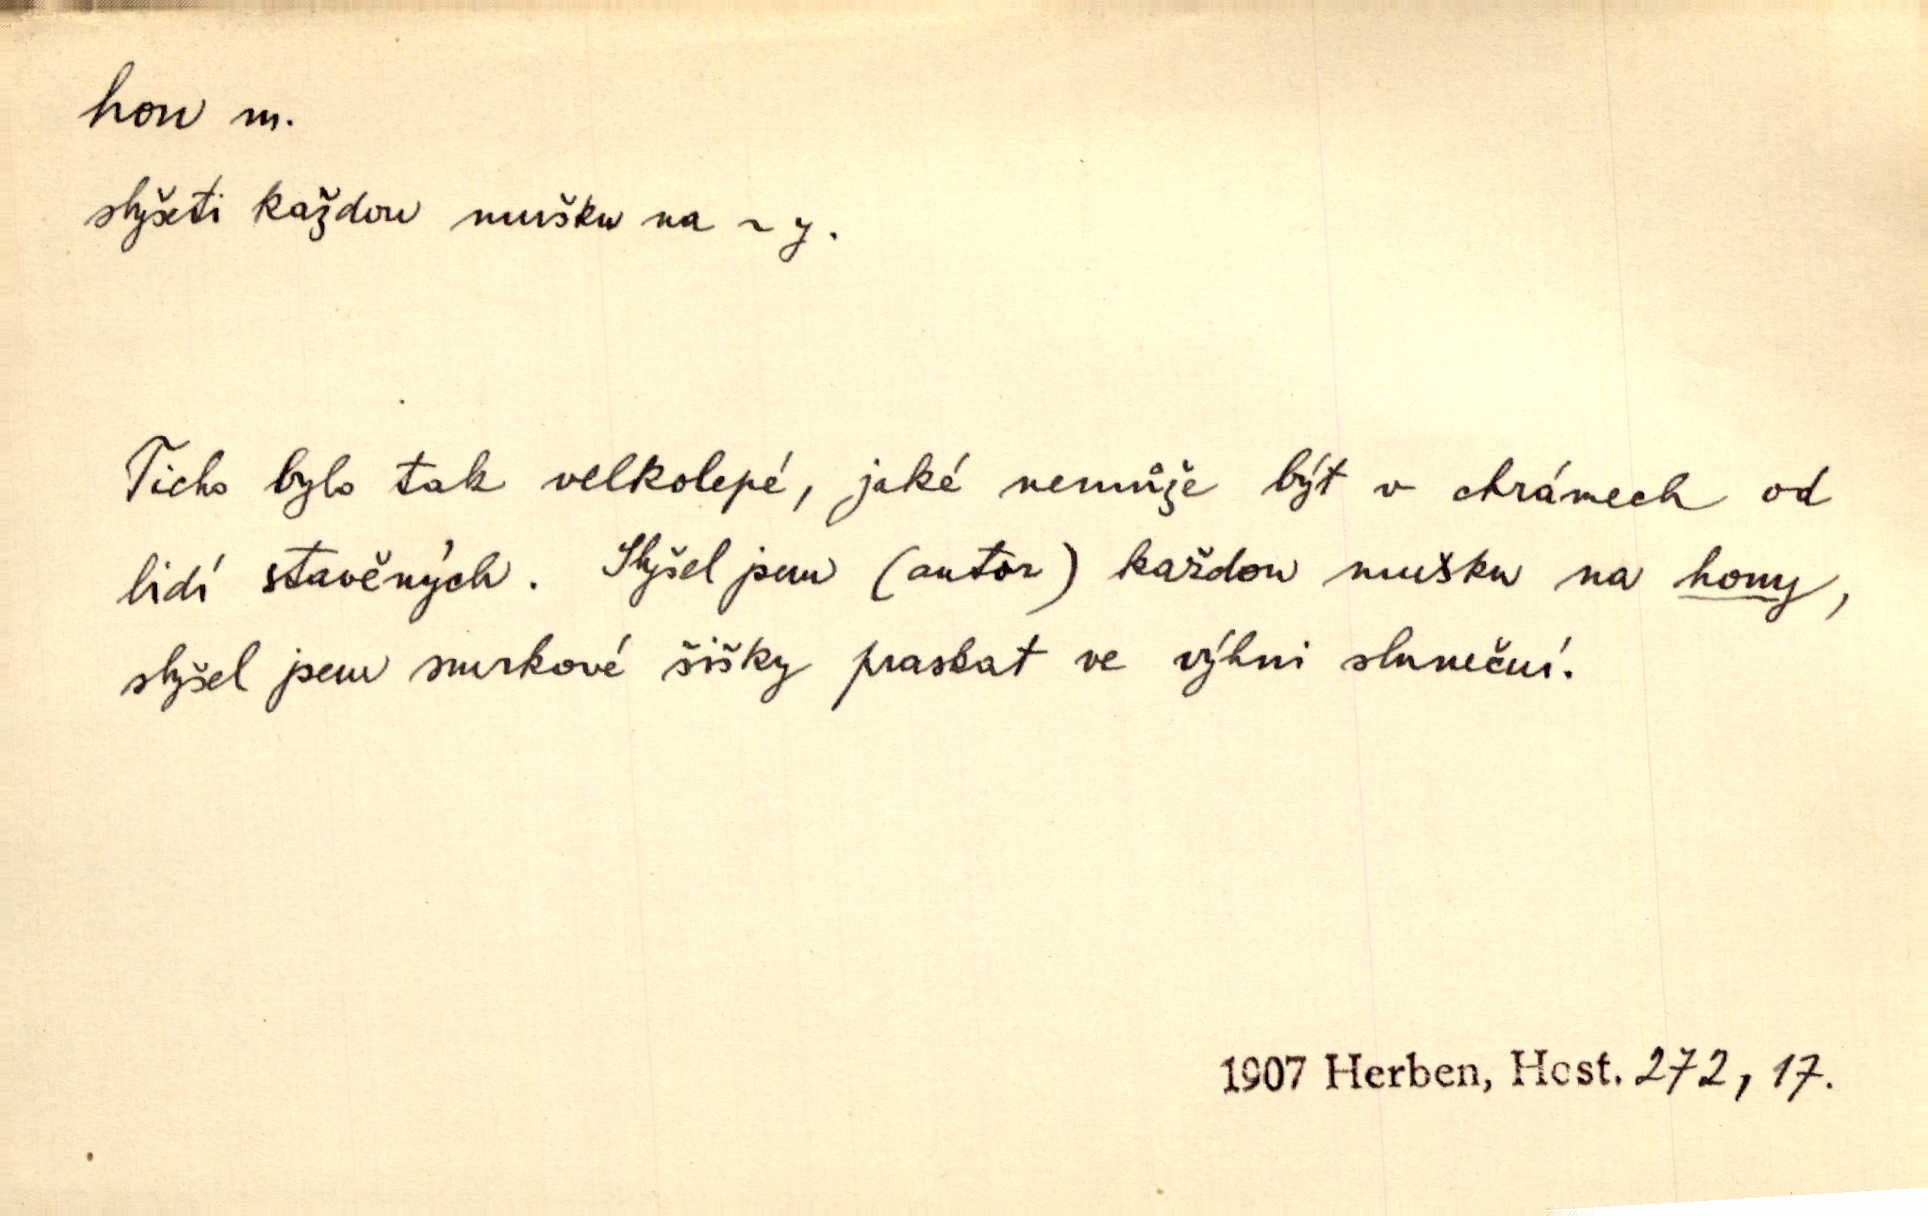 hon m.
slyšeti každou mušku na ~y.
Ticho bylo tak velkolepé, jaké nemůže být v chrámech od
lidí stavěných. Slyšel jsem (autor) každou mušku na hony,
slyšel jsem smrkové šišky praskat ve výhni sluneční.
1907 Herben, Host. 272, 17.